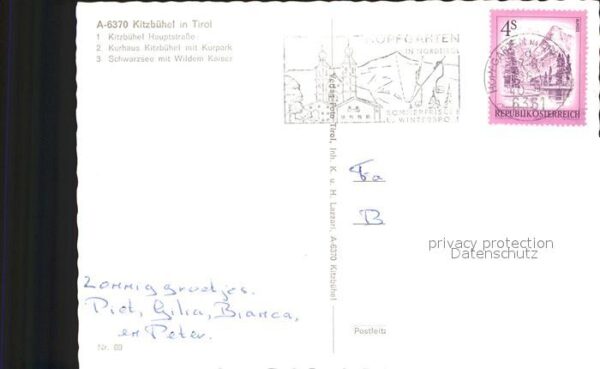 A-6370 Kitzbühel in Tirol
1 Kitzbühel Hauptstraße
2 Kurhaus Kitzbühel mit Kurpark
3 Schwarzsee mit Wildem Kaiser
HOPFGARTEN
IN NORDTIROL
SOMMERFRISCHE
U. WINTERSPORT
HOPFGARTEN IM
6361
4S
REPUBLIK ÖSTERREICH
Verlag Foto Tirol, Inh. K. u. H. Lazzari, A-6370 Kitzbühel
Fa
B
privacy protection
Datenschutz
Zonniggroetjes.
Piet, Gilia, Bianca,
en Peter.
Postleitz
Nr. 89